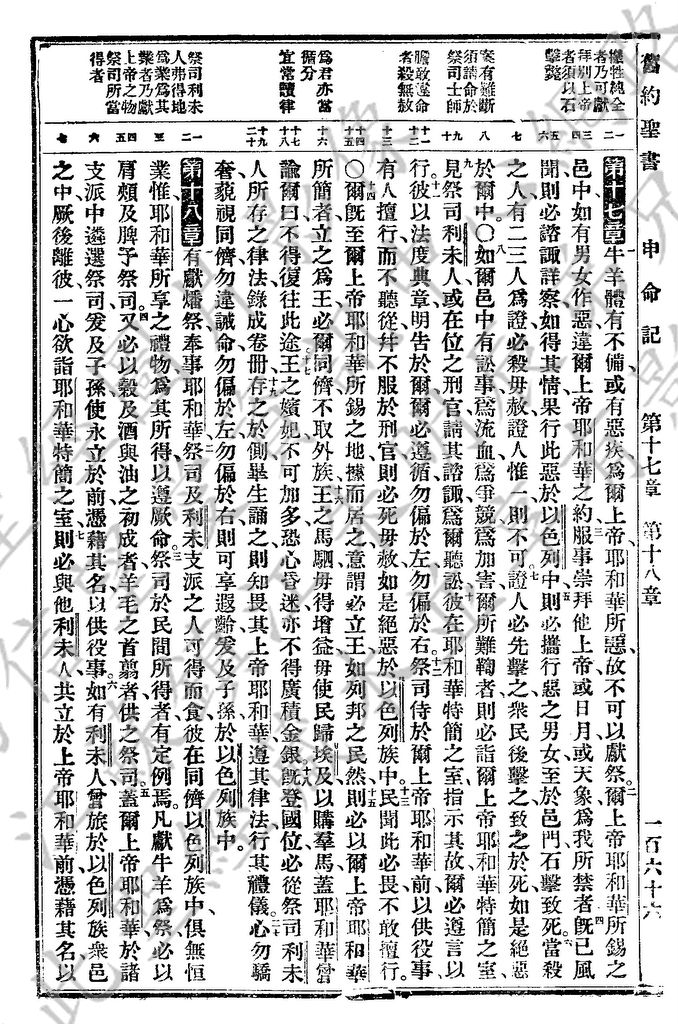 舊約聖書 申命記 第十七章 第十八章 一百六十六
犧牲純全
者乃可獻
拜別上帝
者須以石
擊斃
案有難斷
須請命於
祭司士師
膽敢違命
者殺無赦
爲君亦當
循分
宜常讀律
祭司利未
人弗得地
爲業爲其
業者乃獻
上帝之物
祭司所當
得者
第十七章 一 牛羊體有不備或有惡疾爲爾上帝耶和華所惡故不可以獻祭 二 爾上帝耶和華所錫之
邑中如有男女作惡違爾上帝耶和華之約 三 服事崇拜他上帝或日月或天象爲我所禁者 四 旣已風
聞則必諮諏詳察如得其情果行此惡於以色列中 五 則必攜行惡之男女至於邑門石擊致死 六 當殺
之人有二三人爲證必殺毋赦證人惟一則不可 七 證人必先擊之衆民後擊之致之於死如是絕惡
於爾中〇 八 如爾邑中有訟事爲流血爲爭競爲加害爾所難鞫者則必詣爾上帝耶和華特簡之室
九 見祭司利未人或在位之刑官請其諮諏爲爾聽訟 十 彼在耶和華特簡之室指示其故爾必遵言以
行 十一 彼以法度典章明告於爾爾必遵循勿偏於左勿偏於右 十二 祭司侍於爾上帝耶和華前以供役事
有人擅行而不聽從幷不服於刑官則必死毋赦如是絕惡於以色列族中 十三 民聞此必畏不敢擅行
〇 十四 爾旣至爾上帝耶和華所錫之地據而居之意謂必立王如列邦之民然 十五 則必以爾上帝耶和華
所簡者立之爲王必爾同儕不取外族 十六 王之馬駟毋得增益毋使民歸埃及以購羣馬蓋耶和華曾
諭爾曰不得復往此途 十七 王之嬪妃不可加多恐心昏迷亦不得廣積金銀 十八 旣登國位必從祭司利未
人所存之律法錄成卷册 十九 存之於側畢生誦之則知畏其上帝耶和華遵其律法行其禮儀 二十 心勿驕
奢藐視同儕勿違誡命勿偏於左勿偏於右則可享遐齡爰及子孫於以色列族中
第十八章 一 有獻燔祭奉事耶和華祭司及利未支派之人可得而食 二 彼在同儕以色列族中俱無恒
業惟耶和華所享之禮物爲其所得以遵厥命 三 祭司於民間所得者有定例焉凡獻牛羊爲祭必以
肩頰及脾予祭司 四 又必以穀及酒與油之初成者羊毛之首翦者供之祭司 五 蓋爾上帝耶和華於諸
支派中遴選祭司爰及子孫使永立於前憑藉其名以供役事 六 如有利未人曾旅於以色列族衆邑
之中厥後離彼一心欲詣耶和華特簡之室 七 則必與他利未人共立於上帝耶和華前憑藉其名以